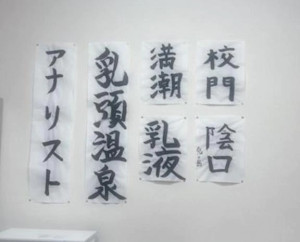 アナリスト
乳頭温泉
満潮
乳液
校門
陰口